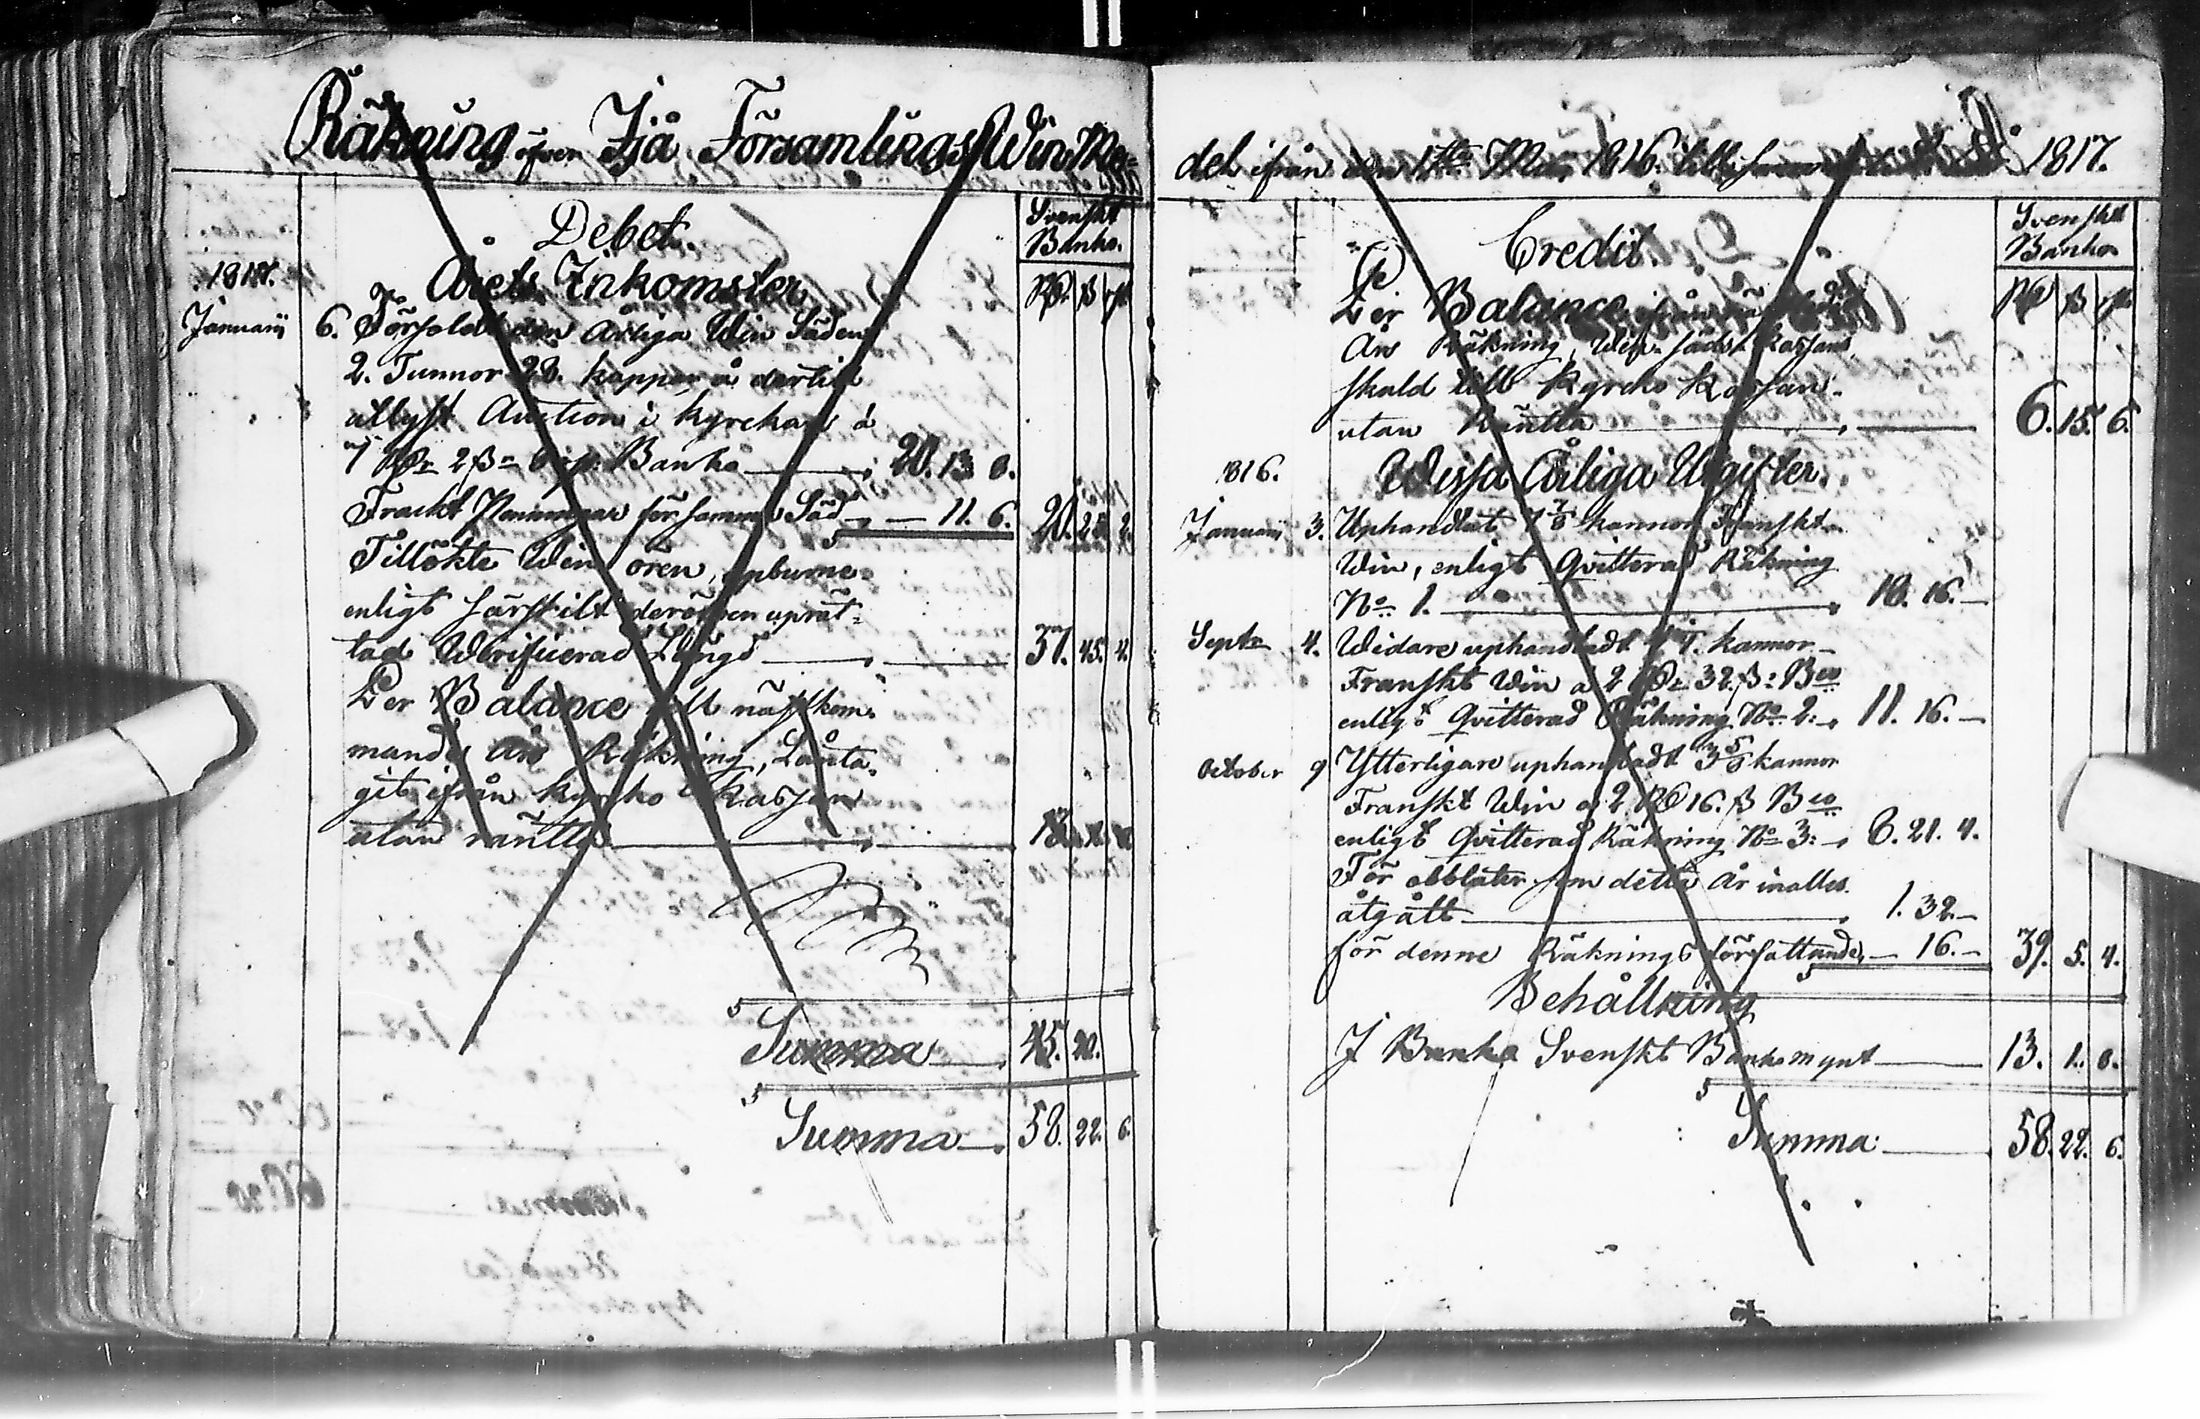 Räkning öfver Ijå Församlings Win Me=
Debet.
Svenskt
Banko.
Årets Inkomster
Rd. ß rst.
1817.
Januarii 6. Försoldt den Årliga Win Säden
2. Tunnor 28. kappar å dertill
utlyst Auction i kyrckan à
7 Rd 2 ß Banko 20. 13 8.
Frackt Penningar för samma Säd — 11. 6. 20. 25. 2.
Tillökte Win ören, upburne
enligt särskilt deröfver uprät=
tad Werificerad Längd 37. 45. 4.
Per Balance till nästkom=
mande Års Räkning, Lånta=
git ifrån Kyrcko Kassan
utan räntta
Summa 45. 20.
Summa 58. 22. 6.
del ifrån den 1sta Maj 1816. till 1817.
Credit.
Svenskt
Banko
Rd ß rst.
Per Balance ifrån
Års Räkning, Win-säds Kassans
skuld till Kyrcko Kassan
utan Räntta 6. 15. 6.
1816. Wissa Årliga Utgifter.
Januarii 3. Uphandlat 7 7/8 kannor Franskt
Win, enligt Qvitterad Räkning
No 1. 18. 16. —
Septr 4. Widare uphandladt kannor
Franskt Win a 2 Rd 32 ß: Bco
enligt Qvitterad Räkning No 2: 11. 16. —
October 9 Ytterligare uphandladt 3 5/8 kannor
Franskt Win a 2 Rd 16. ß Bco
enligt Qvitterad Räkning No 3: 8. 21. 4.
För obblater som detta År inalles
åtgått 1. 32. —
för denne Räknings författande, — 16. — 39. 5. 4.
Behållning
I Banko Svenskt Bankomynt 13. 1. 8.
Summa 58. 22. 6.